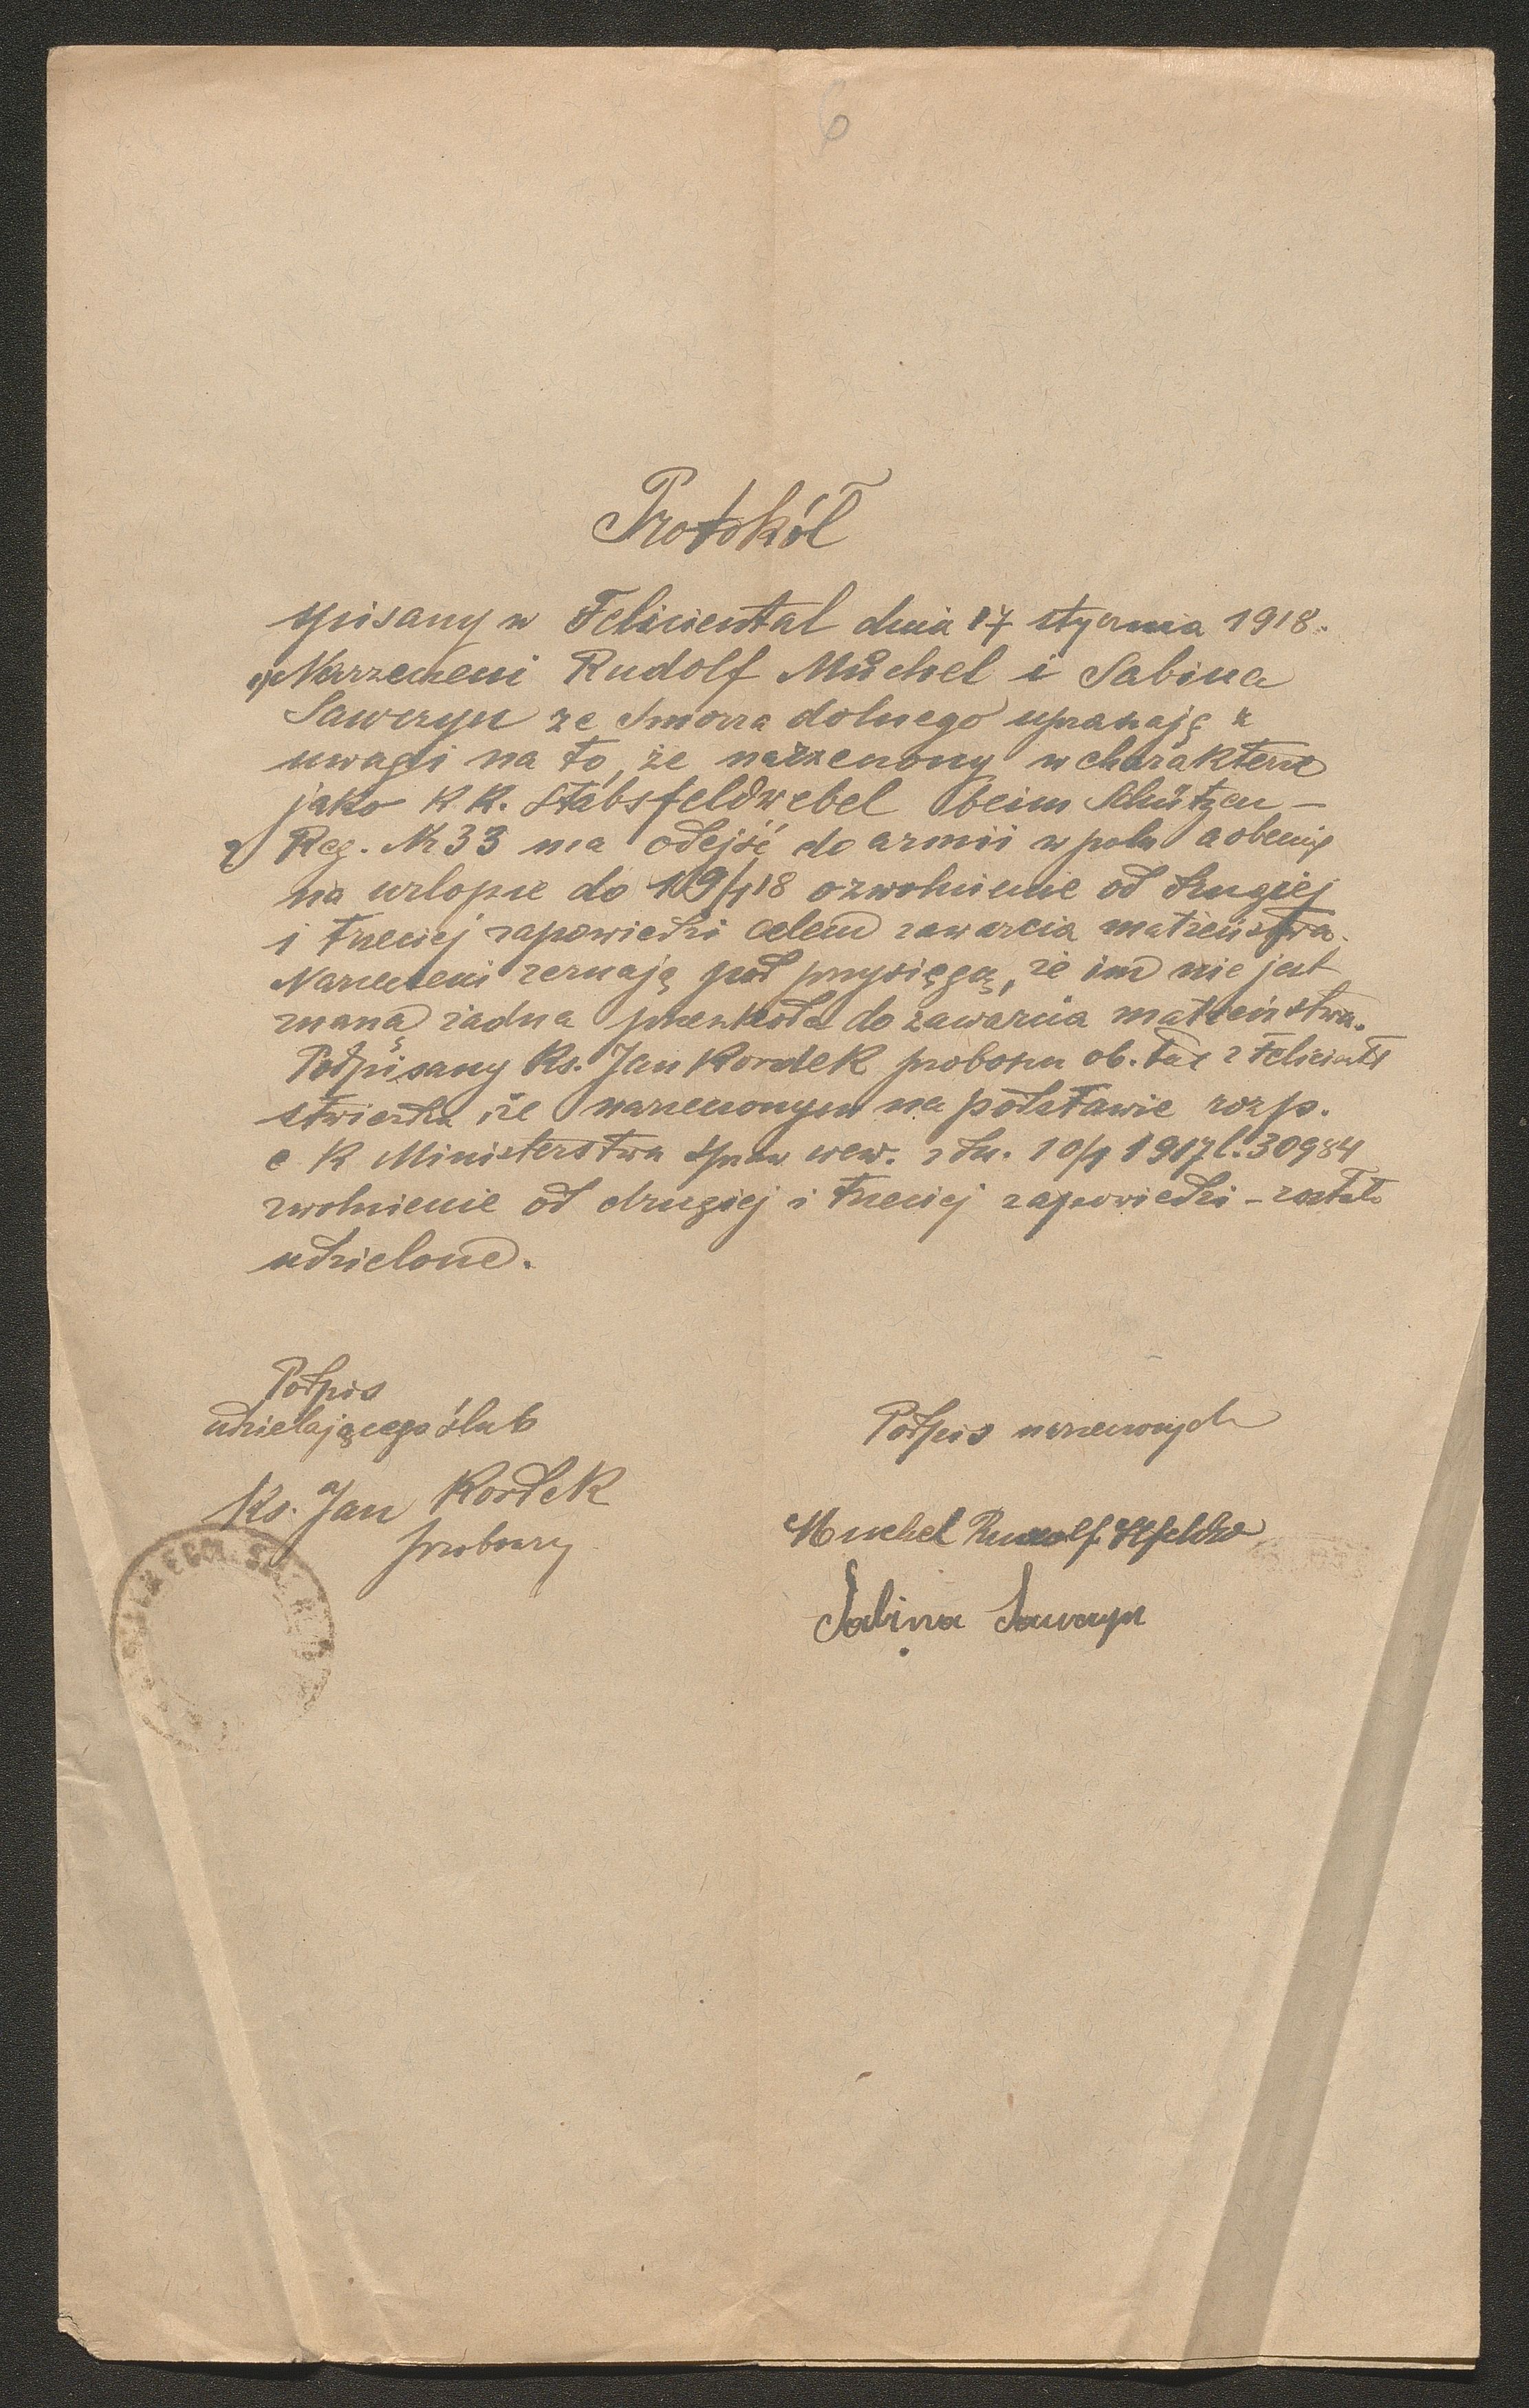 6
Protokół
spisany w Felicientál dnia 17 stycznia 1918.
1) Narzeczeni Rudolf Můchel i Sabina
Saweryn ze Smorza dolnego upraszają z
uwagi na to, że narzeczony w charakterze
jako k k. Stabsfeldwebel beim Schützen -
2) Reg. Nr 33 ma odejść do armii w polu a obecnie
na urlopie do 19/1 18 o zwolnienie od drugiej
i trzeciej zapowiedzi celem zawarcia małżeństwa.
Narzeczeni zeznają pod przysięgą, że im nie jest
znaną żadna przeszkoda do zawarcia małżeństwa.
Podpisany Ks. Jan Kordek proboszcz ob. łać z Felicientál
stwierdza, że narzeczonym na podstawie rozp.
c k Ministerstwa Spraw wew. z dn. 10/1 1917 l. 30984
zwolnienie od drugiej i trzeciej zapowiedzi - zostało
udzielone.
Podpis
udzielającego ślub
Ks. Jan Kordek
proboszcz
Podpis narzeczonych
Muchel Rudolf Stfeldw
Sabina Saweryn